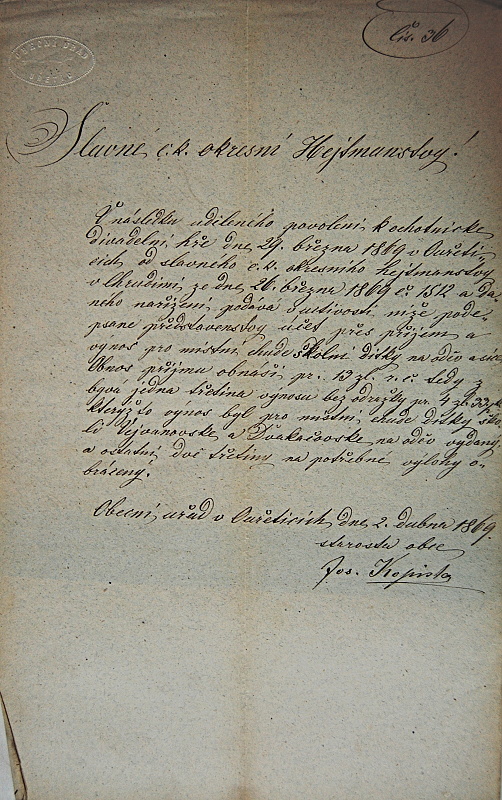 Čís. 36
Slavné c. k. okresní Hejtmanstvy!
V následku uděleného povolení k ochotnické
divadelní hře dne 29. března 1869 v Ouřeti-
cích od slavného c. k. okresního hejtmanstvy
v Chrudimi ze dne 26. března 1869 č. 1512 a da-
ného nařízení podává v uctivosti níže pode-
psané představenstvy účet přes příjem a
vynos pro místní chudé školní dítky na oděv
Obnos příjmu obnáší pr. 13 zl. r. č. tedy z
byva jedna třetina vynosu bez srážky pr. 4 zl. 33
kterýžto vynos byl pro místní chudé dítky ško-
lě a na oděv vydaný
a ostatní dvě třetiny na potřebné výlohy o-
bráceny.
Obecní úřad v Ouřeticích dne 2. dubna 1869.
starosta obce
Jos. Kopista